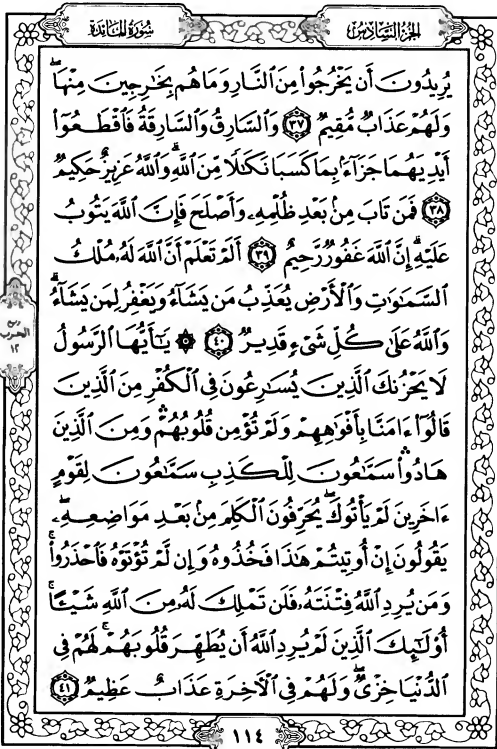 سُورَةُ المَائِدَةِ
الجُزْءُ السَّادِسُ
يُرِيدُونَ أَن يَخْرُجُوا۟ مِنَ ٱلنَّارِ وَمَا هُم بِخَٰرِجِينَ مِنْهَا ۖ
وَلَهُمْ عَذَابٌ مُّقِيمٌ ٣٧ وَٱلسَّارِقُ وَٱلسَّارِقَةُ فَٱقْطَعُوٓا۟
أَيْدِيَهُمَا جَزَآءًۢ بِمَا كَسَبَا نَكَٰلًا مِّنَ ٱللَّهِ ۗ وَٱللَّهُ عَزِيزٌ حَكِيمٌ
٣٨ فَمَن تَابَ مِنۢ بَعْدِ ظُلْمِهِۦ وَأَصْلَحَ فَإِنَّ ٱللَّهَ يَتُوبُ
عَلَيْهِ ۗ إِنَّ ٱللَّهَ غَفُورٌ رَّحِيمٌ ٣٩ أَلَمْ تَعْلَمْ أَنَّ ٱللَّهَ لَهُۥ مُلْكُ
ٱلسَّمَٰوَٰتِ وَٱلْأَرْضِ يُعَذِّبُ مَن يَشَآءُ وَيَغْفِرُ لِمَن يَشَآءُ ۗ
وَٱللَّهُ عَلَىٰ كُلِّ شَىْءٍ قَدِيرٌ ٤٠ ۞ يَٰٓأَيُّهَا ٱلرَّسُولُ
لَا يَحْزُنكَ ٱلَّذِينَ يُسَٰرِعُونَ فِى ٱلْكُفْرِ مِنَ ٱلَّذِينَ
قَالُوٓا۟ ءَامَنَّا بِأَفْوَٰهِهِمْ وَلَمْ تُؤْمِن قُلُوبُهُمْ ۛ وَمِنَ ٱلَّذِينَ
هَادُوا۟ ۛ سَمَّٰعُونَ لِلْكَذِبِ سَمَّٰعُونَ لِقَوْمٍ
ءَاخَرِينَ لَمْ يَأْتُوكَ ۖ يُحَرِّفُونَ ٱلْكَلِمَ مِنۢ بَعْدِ مَوَاضِعِهِۦ ۖ
يَقُولُونَ إِنْ أُوتِيتُمْ هَٰذَا فَخُذُوهُ وَإِن لَّمْ تُؤْتَوْهُ فَٱحْذَرُوا۟ ۚ
وَمَن يُرِدِ ٱللَّهُ فِتْنَتَهُۥ فَلَن تَمْلِكَ لَهُۥ مِنَ ٱللَّهِ شَيْـًٔا ۚ
أُو۟لَٰٓئِكَ ٱلَّذِينَ لَمْ يُرِدِ ٱللَّهُ أَن يُطَهِّرَ قُلُوبَهُمْ ۚ لَهُمْ فِى
ٱلدُّنْيَا خِزْىٌ ۖ وَلَهُمْ فِى ٱلْءَاخِرَةِ عَذَابٌ عَظِيمٌ ٤١
ربع
الحزب
١٢
١١٤